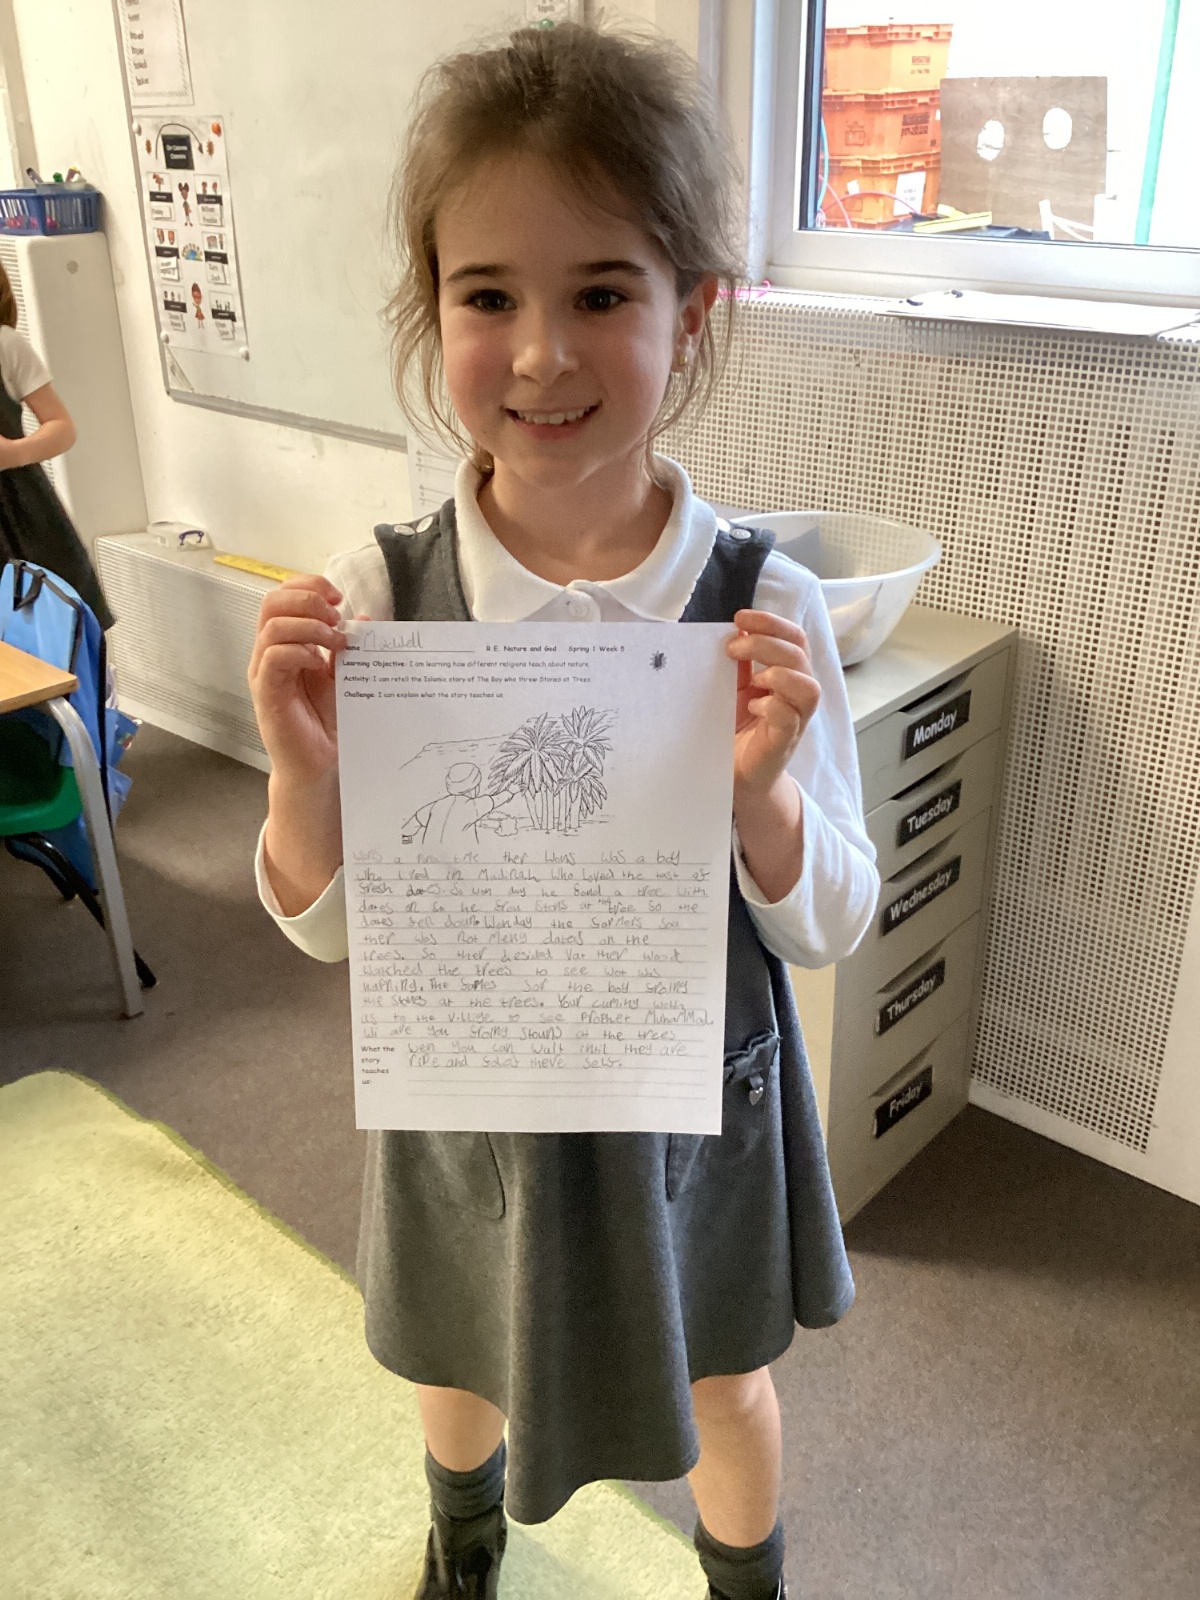 Name Maxwell R.E. Nature and God Spring 1 Week 5
Learning Objective: I am learning how different religions teach about nature
Activity: I can retell the Islamic story of The Boy who threw Stones at Trees
Challenge: I can explain what the story teaches us
a time ther wons was a boy
who lived in Madinah who loved the tast of
fresh dates. So won day he fand a tree with
dates on so he frou stons at the tree so the
dates fell down. Wonday the farmers saw
ther was not meny dates on the
trees. So ther desided vat ther wood
watched the trees to see wot was
happning. The for the boy froing
the stones at the trees. Your cuming with
us to the village to see Prophet Muhammad.
Wi are you froing stouns at the trees
wen you can wait until they are
ripe and falos theve self.
What the
story
teaches
us:
Monday
Tuesday
Wednesday
Thursday
Friday